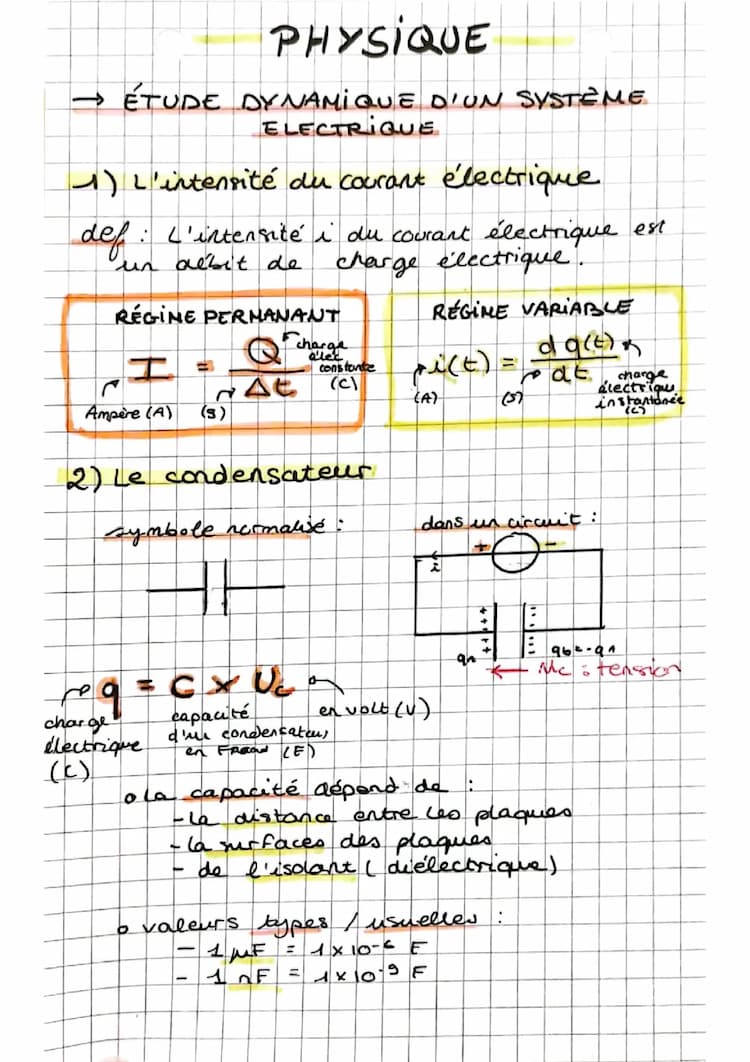 PHYSIQUE
→ ÉTUDE DYNAMIQUE D'UN SYSTÈME
ELECTRIQUE
1) L'intensité du courant électrique
def : L'intensité i du courant électrique est
un débit de charge électrique.
RÉGIME PERMANANT
I = Q / Δt
charge
élect
constante
(C)
Ampère (A) (s)
RÉGIME VARIABLE
i(t) = d q(t) / dt
(A) (s)
charge
électrique
instantanée
(C)
2) Le condensateur
symbole normalisé :
dans un circuit :
+ -
i
qA qb = -qA
← Mc : tension
q = C x Uc
charge
électrique
(C)
capacité
d'un condensateur
en Farad (F)
en volt (V)
o La capacité dépend de :
- La distance entre les plaques
- La surfaces des plaques
- de l'isolant ( diélectrique)
o valeurs types / usuelles :
- 1 μF = 1 x 10⁻⁶ F
- 1 nF = 1 x 10⁻⁹ F